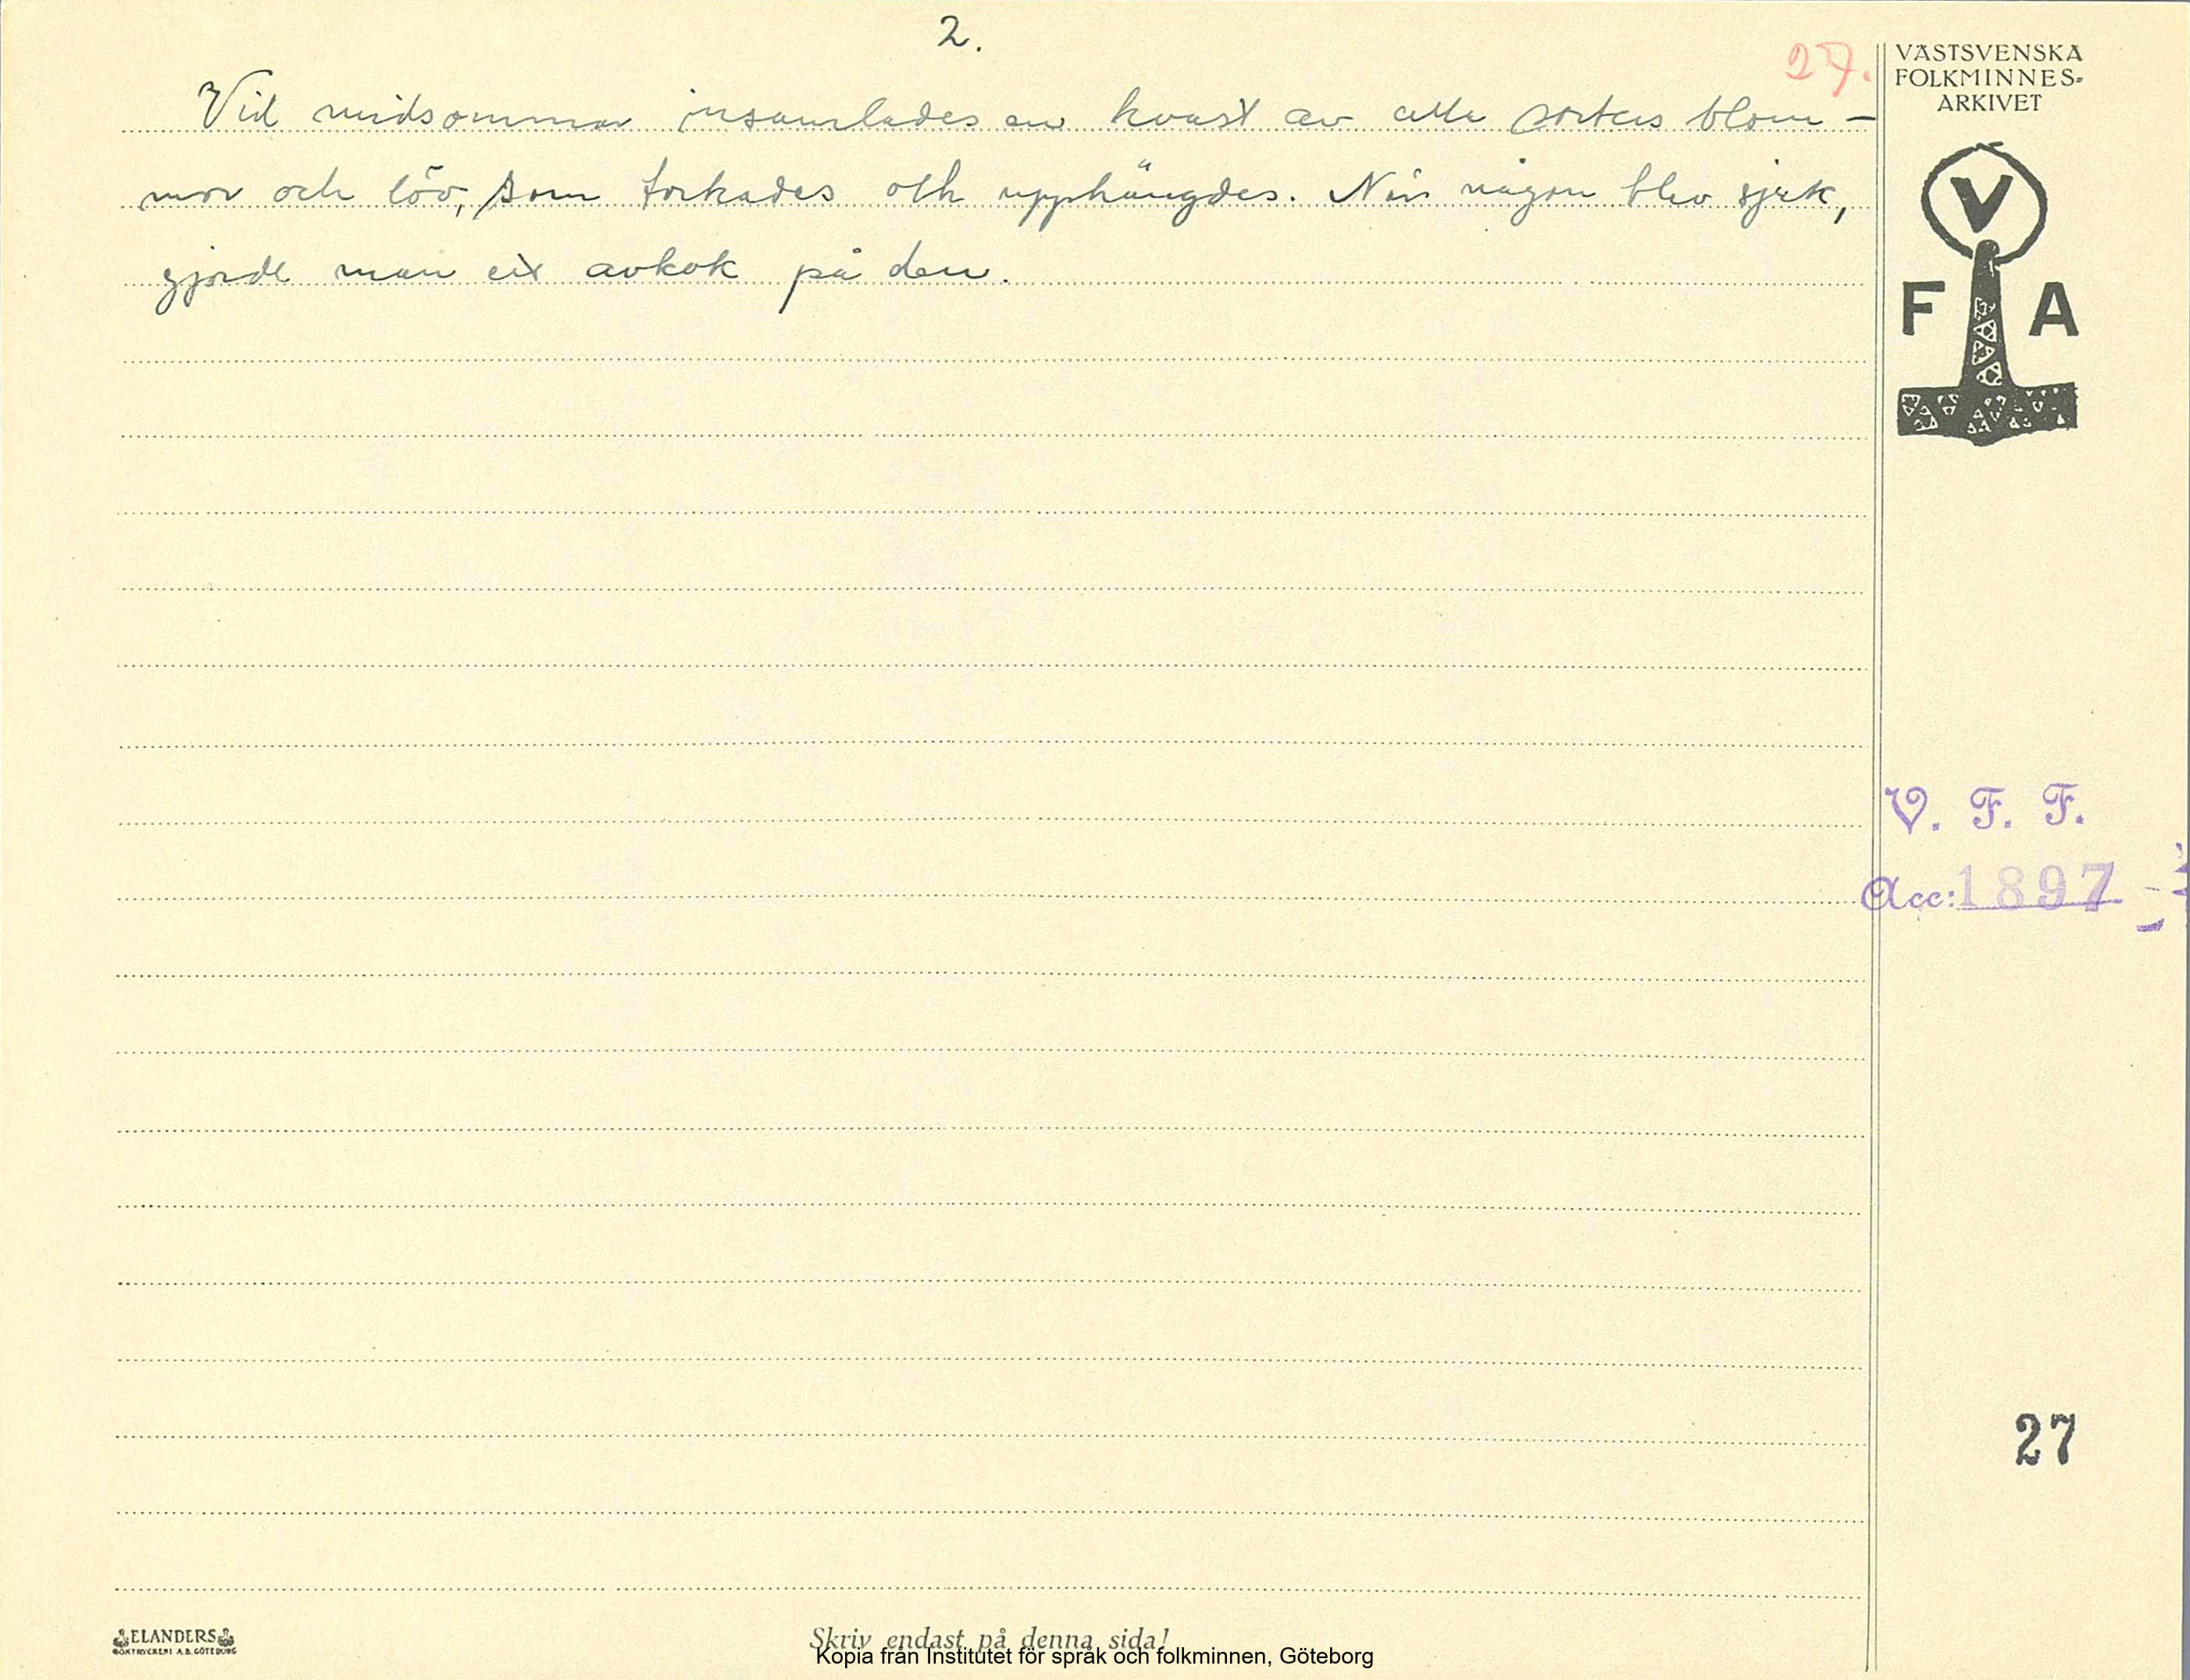 2.
27.
Vid midsommar insamlades en kvast av alla sorters blom-
mor och löv, som torkades och upphängdes. När någon blev sjuk,
gjorde man ett avkok på den.
VÄSTSVENSKA
FOLKMINNES-
ARKIVET
V
F A
V. F. F.
Acc: 1897
27
ELANDERS
BOKTRYCKERI A.B. GÖTEBORG
Skriv endast på denna sida!
Kopia från Institutet för språk och folkminnen, Göteborg